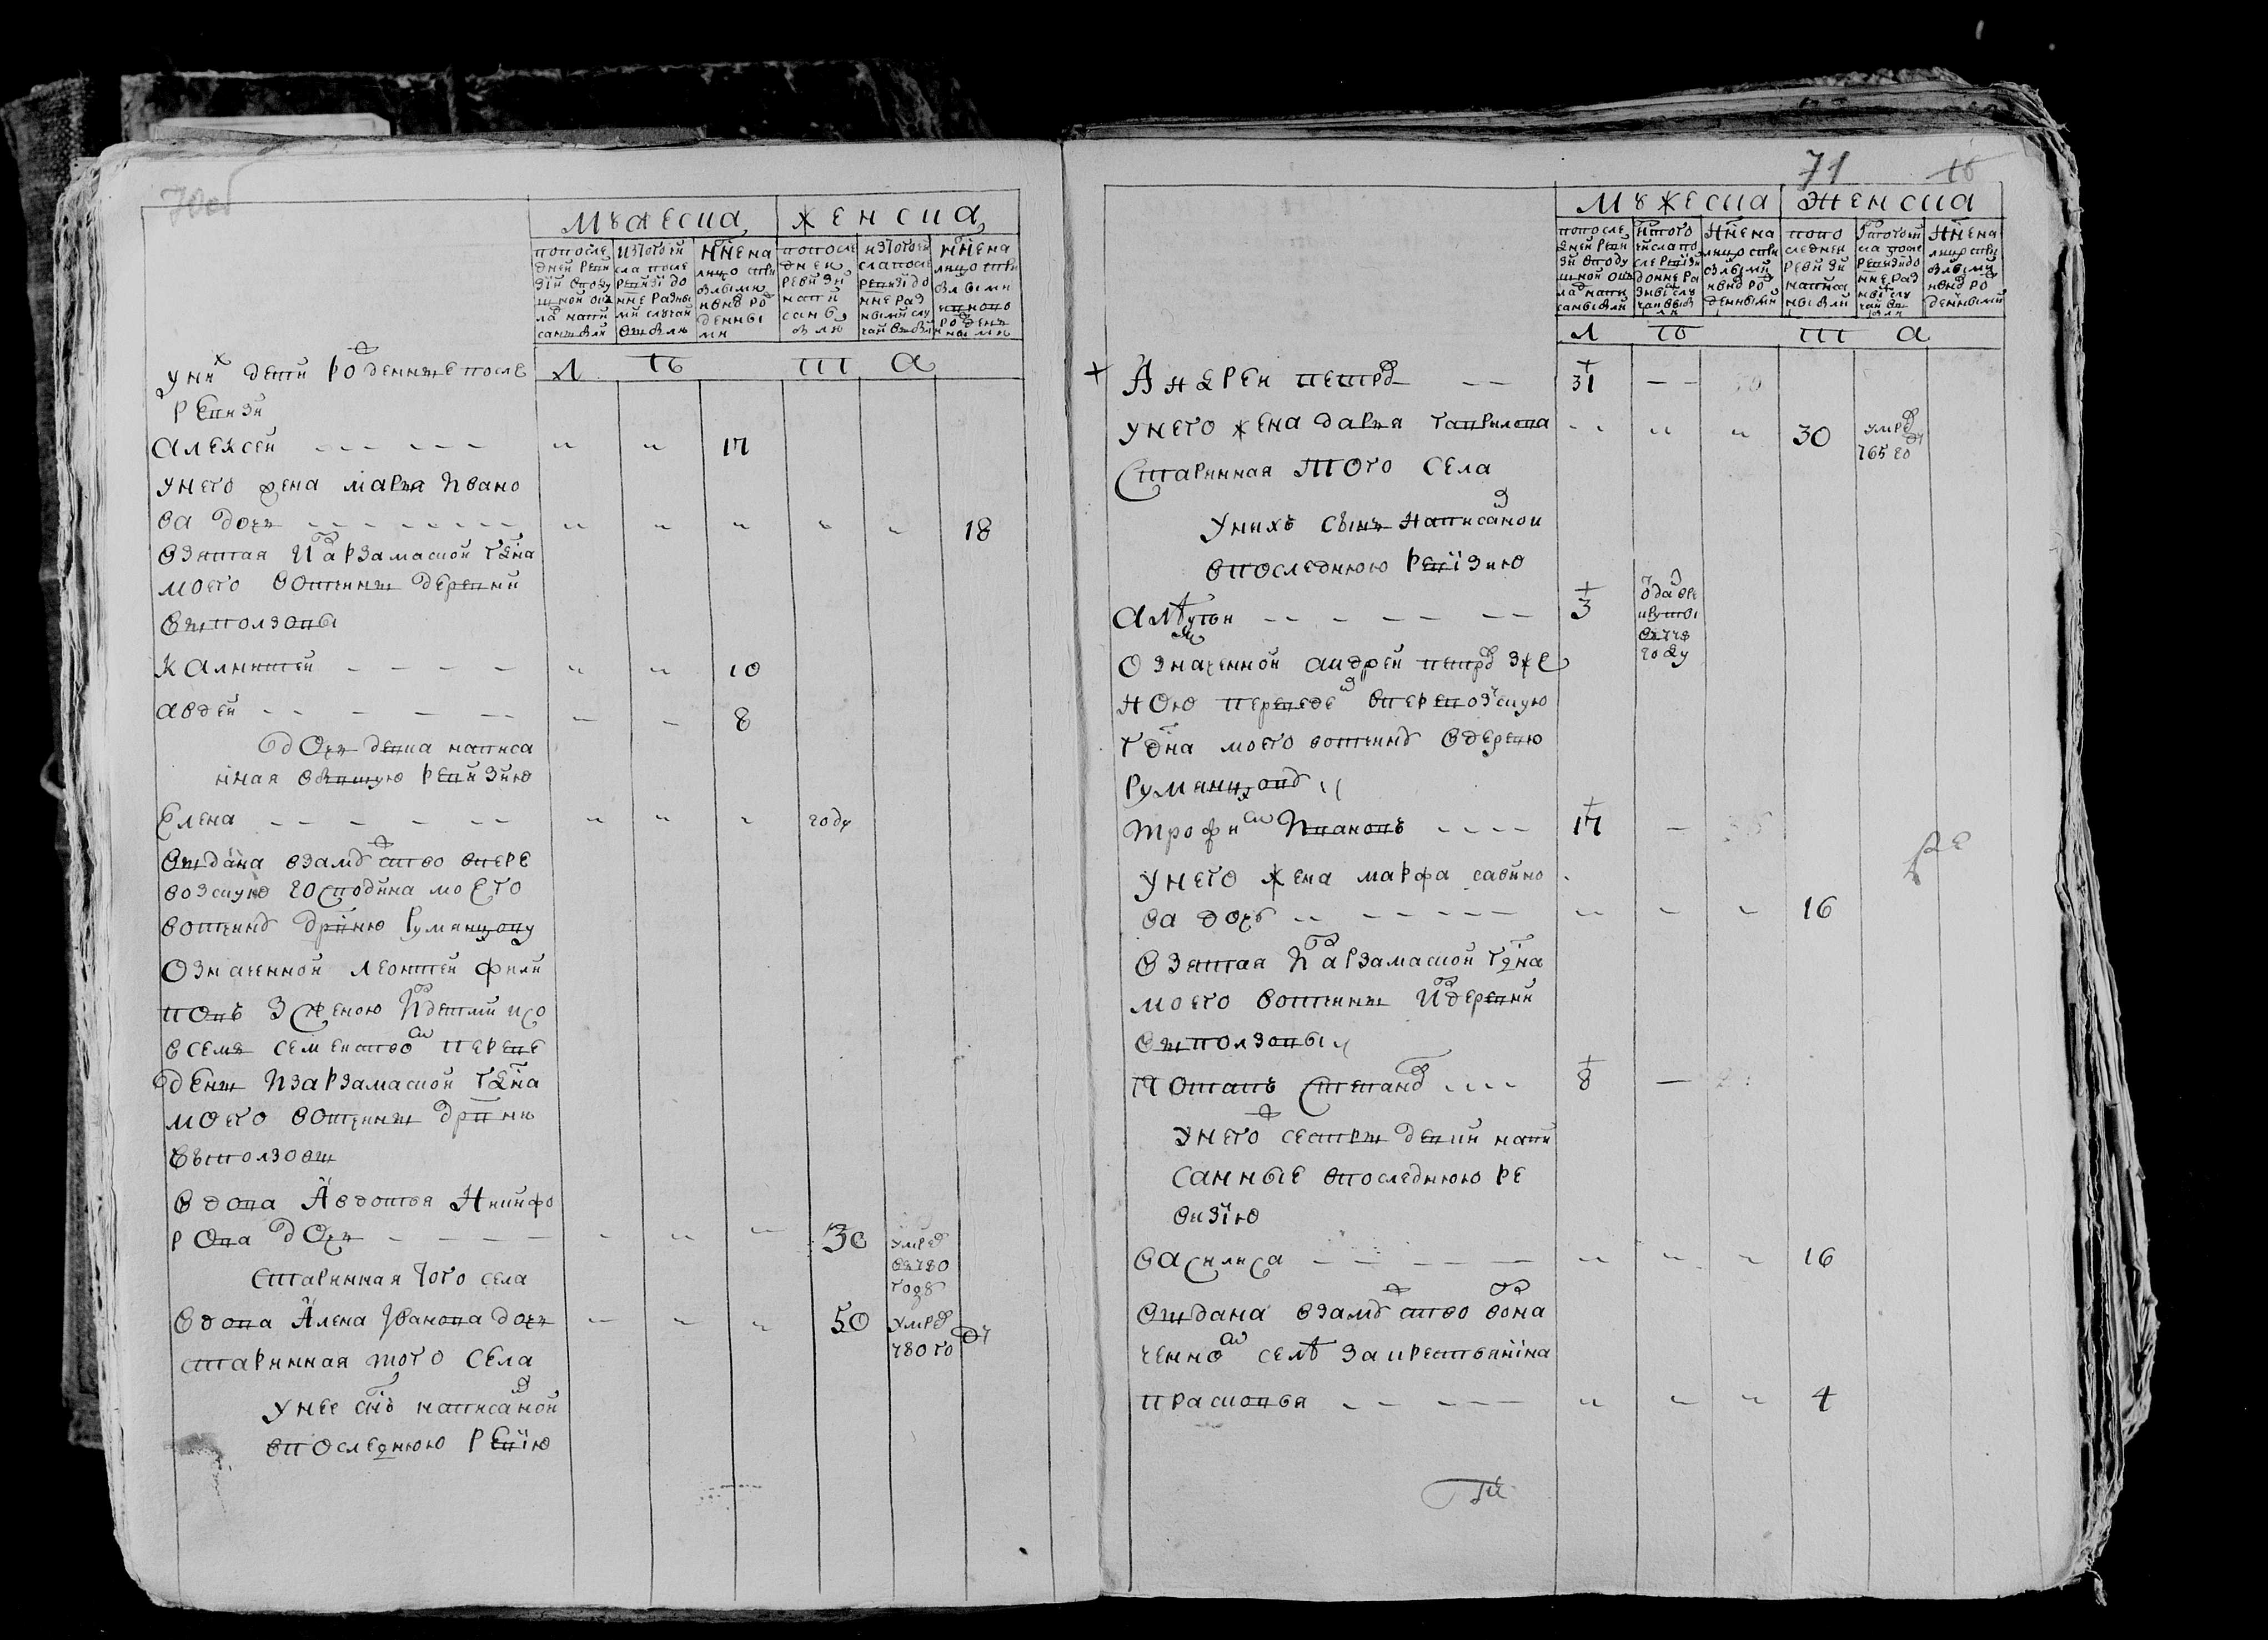 70об
Мужеска женска
По после
дней реви
зіи в поду
шной ок
лад напи
саны были
Из того чи
сла после
ревизіи до
нне разны
ми случаи
выбыли
Ныне на
лицо съ при
былыми
и вновь ро
денны
ми
По после
дней
ревизи
напи
саны
были
Из того чи
сла после
ревизіи до
нне раз
ными слу
чаи выбыли
Ныне на
лицо съ при
былыми
и вново
рожден
ными
л ѣ т а
У них дети рожденныя после
ревизи
Алексей - - - - - - " " 17
у него жена маръя Ивано
ва дочь - - - - - - - " " " " " 18
взятая из арзамаской гдна
моего вотчины деревни
выползовы
Калинтей - - - - " " 10
авдей - - - - - " " 8
дочь девка написа
нная в бывшую ревизию
Елена - - - - - - " " " году
выдана в замужство в пере
возскую господина моего
вотчину дрвню румянцову
означенной леонтей фили
повъ з женою и детми и со
всемъ семействомъ переве
дены из арзамаской гдна
моего вотчины дрвни
выползовы
вдова Авдотья Никифо
рова дочь - - - - - " " " 30 умре
въ 780
году
старинная того села
вдова Алена Иванова дочь - " " 50 умре
780 го
ду
старинная того села
у нее снъ написаной
в последнюю ревизію
71
16
Мужеска женска
По после
дней реви
зи в поду
шной ок
лад напи
саны были
Из того
числа по
сле ревизи
до нне ра
зными слу
чаи выбы
ли
Ныне на
лицо съ при
былыми
и вновь ро
денными
По по
следней
ревизи
написа
ны были
Из того чи
сла после
ревизіи до
нне раз
ными слу
чаи вы
были
Ныне на
лицо съ при
былыми
и вновь ро
денными
л ѣ т а
+ Андрей петров - - 31 - -
у него жена даръя гаврилова " " " 30 умре
765 го
ду
старинная того села
у нихъ сынъ написаной
в последнюю ревізию
- - - - - - 3 отдан в ре
круты
въ 778
году
означенной андрей петров з же
ною переведен в перевозскую
гдна моего вотчину в деревню
румянцову
трофим Ивановъ - - - - 17 -
у него жена марфа савино
ва дочь - - - - - - " - " 16
взятая из арзамаской гдна
моего вотчины из деревни
выползовы
Потапъ степанов - - - 8 -
у него сестры девки напи
санные в последнюю ре
визію
василиса - - - - - " " " 16
выдана в замужство в озна
ченном селѣ за крестьянина
прасковья - - - - - " " " 4